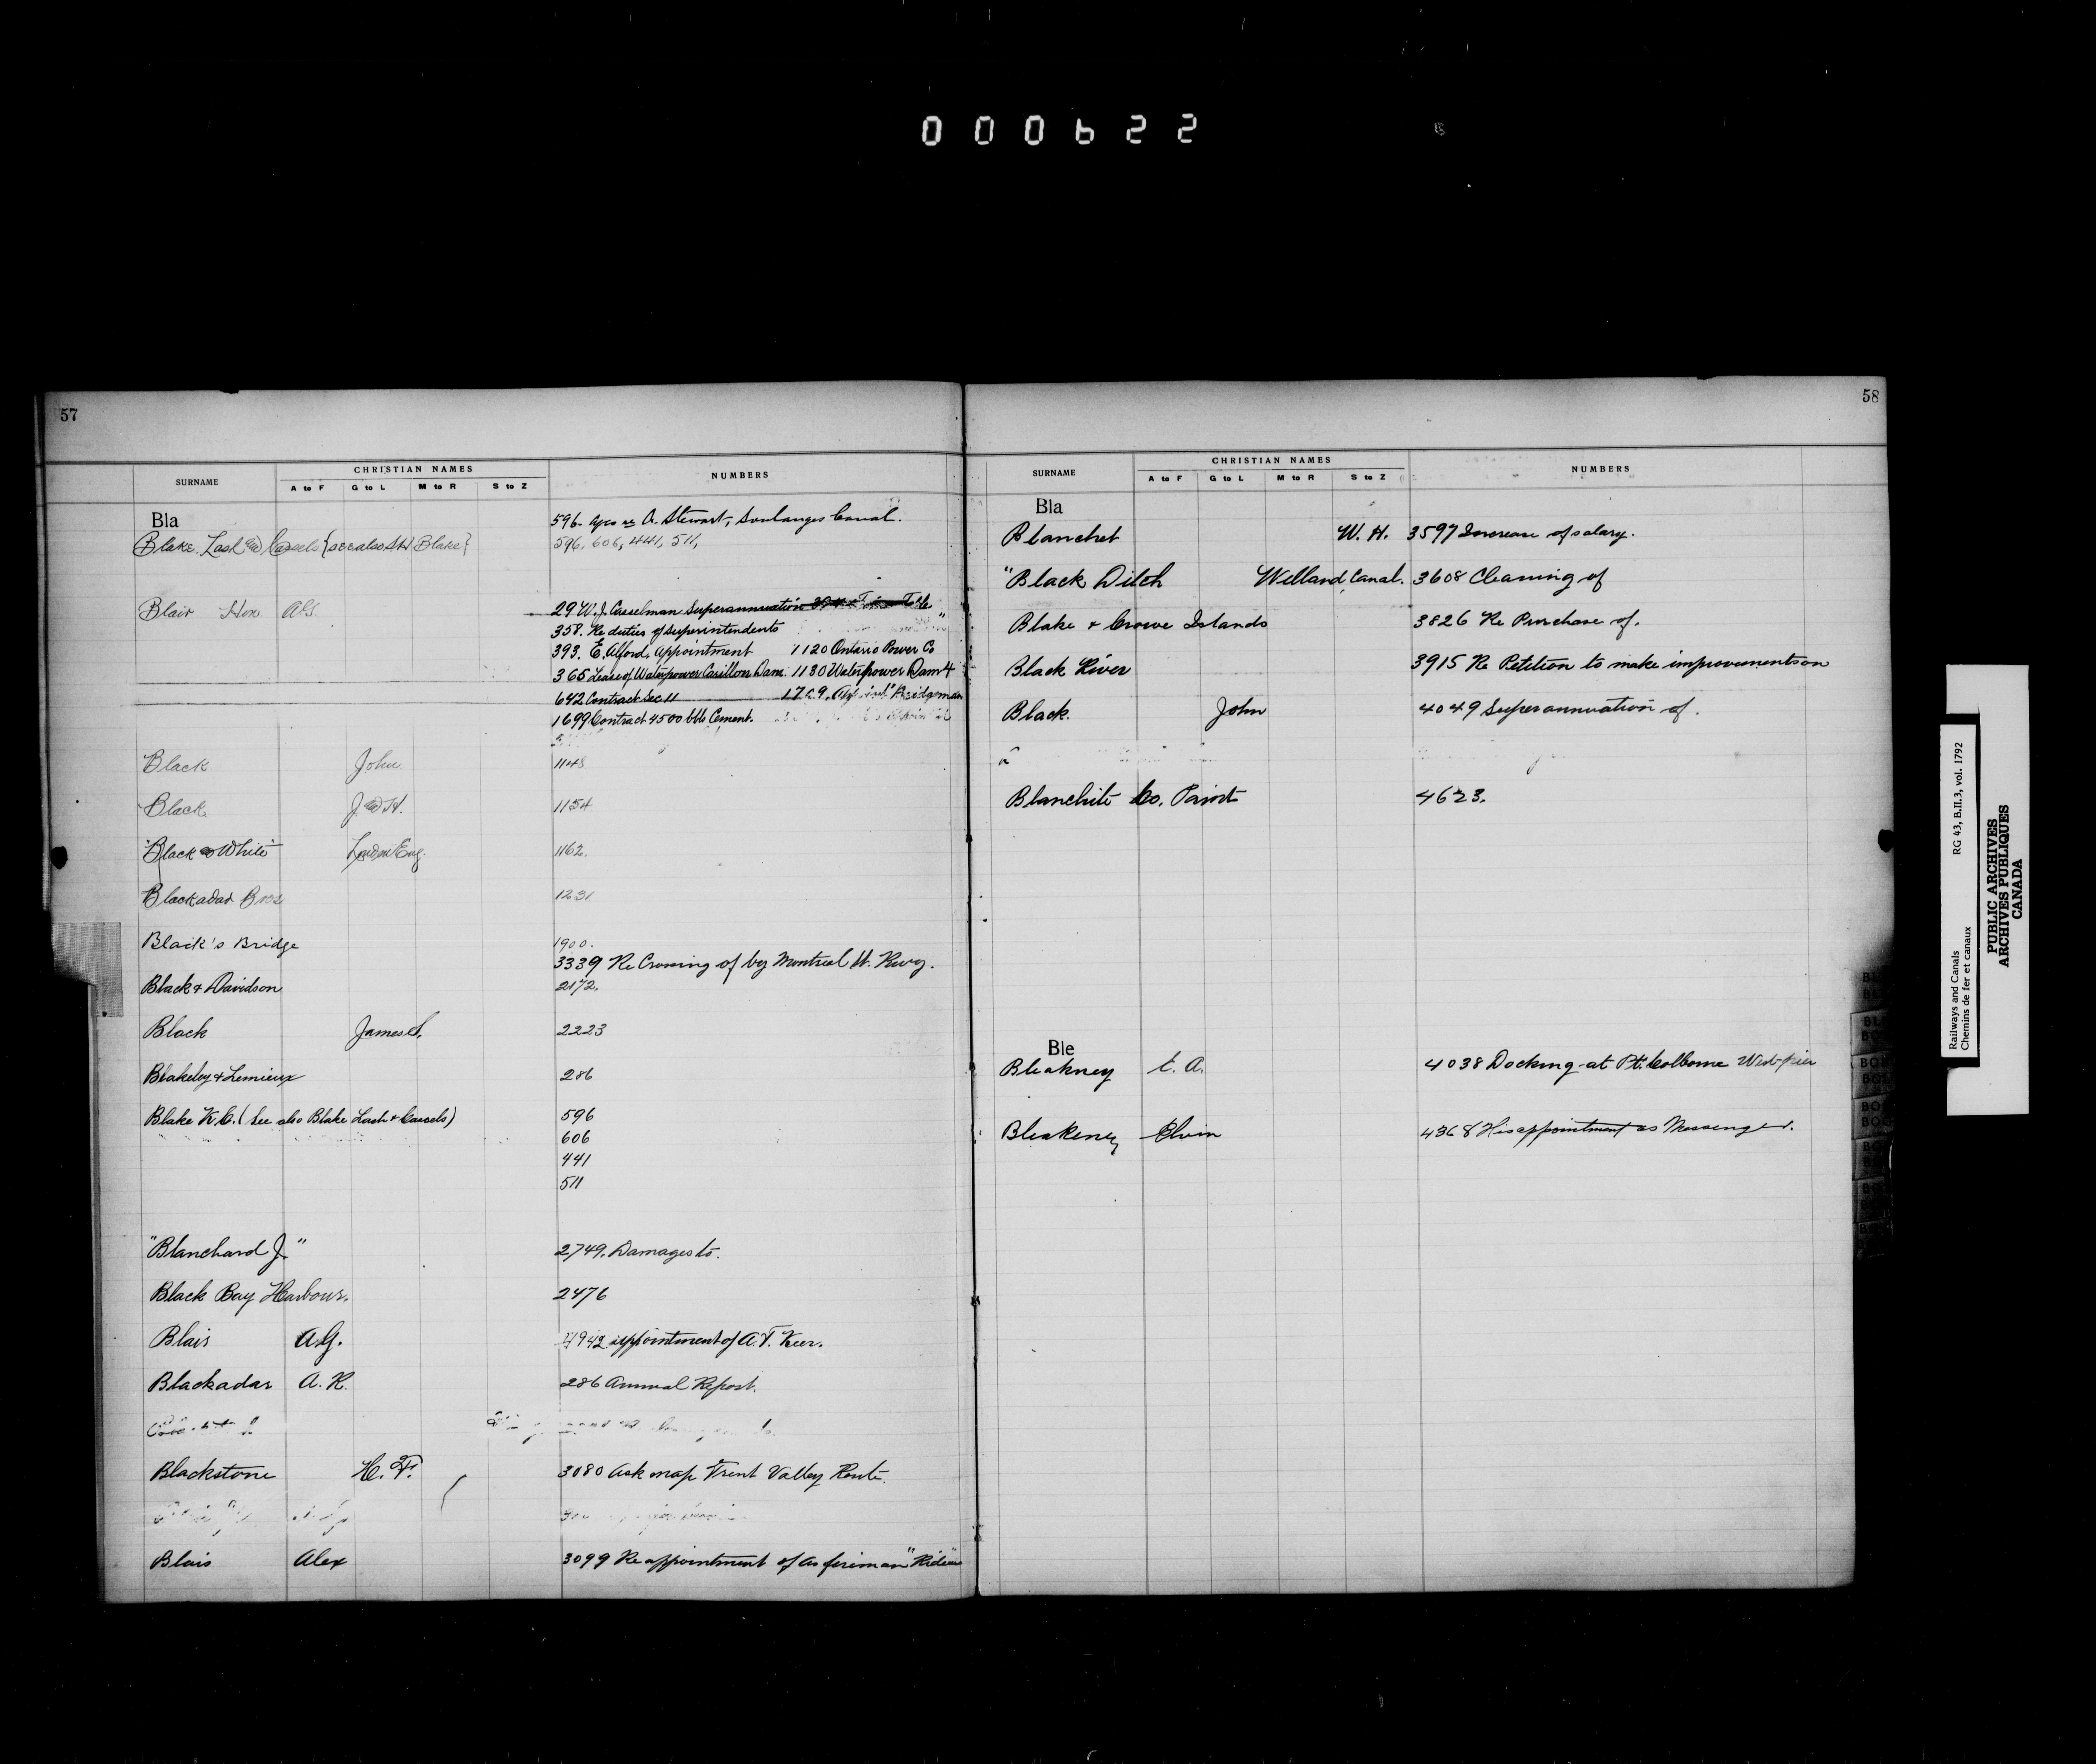 000622
57
SURNAME
CHRISTIAN NAMES
A to F G to L M to R S to Z
NUMBERS
Bla
596. re A. Stewart, Soulanges Canal.
Blake, Lash & Cassels {see also Blake}
596, 606, 441, 511,
Blair Hon. A.G.
29 W. J. Casselman Superannuation
358. Re duties of Superintendents
393. E. Alford, Appointment 1120 Ontario Power Co
365 Lease of Waterpower Carillon Dam. 1130 Waterpower Dam 4
642 Contract Sec 11 1729.
1699 Contract 4500 bbls Cement.
Black John 1148
Black J & H. 1154
"Black & White" London Eng. 1162.
Blackadar Bros 1231
Black's Bridge 1900.
3339 Re Crossing of by Montreal St. Rwy.
Black & Davidson 2172.
Black James S. 2223
Blakeley & Lemieux 286
Blake K.C. (See also Blake Lash & Cassels) 596
606
441
511
"Blanchard J." 2749. Damages to.
Black Bay Harbour. 2476
Blair A.G. 4942 appointment of A.T. Kerr.
Blackadar A. K. 286 Annual Report.
Blackstone H. F. 3080 Ask map Trent Valley Route.
Blais Alex 3099 Re appointment of as fireman "Rideau
58
SURNAME
CHRISTIAN NAMES
A to F G to L M to R S to Z
NUMBERS
Bla
Blanchet W. H. 3597 Increase of salary.
"Black Ditch Welland Canal. 3608 Cleaning of
Blake & Crowe Islands 3826 Re Purchase of.
Black River 3915 Re Petition to make improvements on
Black. John 4049 Superannuation of.
Blanchite Co. Paint 4623.
Ble
Bleakney C. A. 4038 Docking at Pt. Colborne West pier
Bleakney Elvin 4368 His appointment as Messenger.
Railways and Canals RG 43, B.II.3, vol. 1792
Chemins de fer et canaux
PUBLIC ARCHIVES
ARCHIVES PUBLIQUES
CANADA